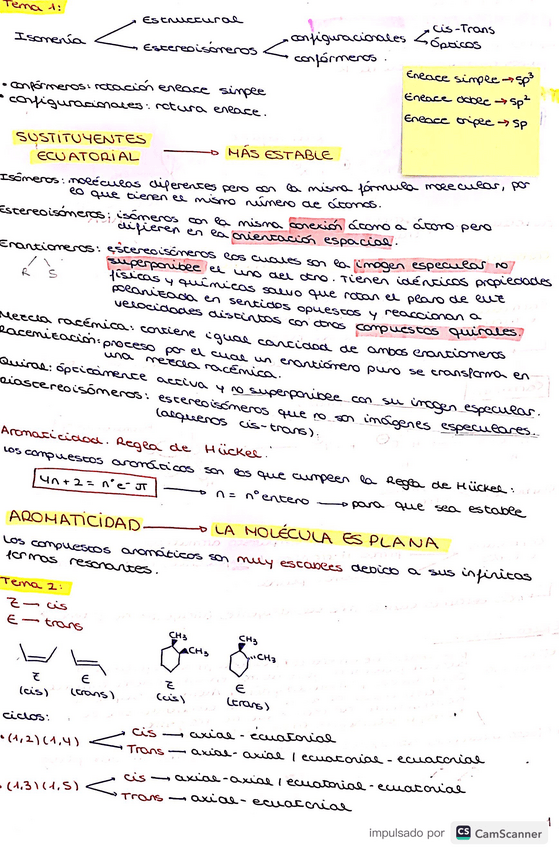 Tema 1:
Isomería
Estructural
Estereoisómeros
configuracionales
confórmeros.
Cis-Trans
Ópticos
• confórmeros: rotación enlace simple
• configuracionales: rotura enlace.
Enlace simple → sp³
Enlace doble → sp²
Enlace triple → sp
SUSTITUYENTES
ECUATORIAL → MÁS ESTABLE
Isómeros: moléculas diferentes pero con la misma fórmula molecular, por
lo que tienen el mismo número de átomos.
Estereoisómeros: isómeros con la misma conexión átomo a átomo pero
difieren en la orientación espacial.
Enantiómeros: estereoisómeros los cuales son la imagen especular no
R S
superponible el uno del otro. Tienen idénticos propiedades
físicas y químicas salvo que rotan el plano de luz
polarizada en sentidos opuestos y reaccionan a
velocidades distintas con otros compuestos quirales.
Mezcla racémica: contiene igual cantidad de ambos enantiómeros
Racemización: proceso por el cual un enantiómero puro se transforma en
una mezcla racémica.
Quiral: ópticamente activa y no superponible con su imagen especular.
Diastereoisómeros: estereoisómeros que no son imágenes especulares.
(algunos cis-trans).
Aromaticidad. Regla de Hückel.
Los compuestos aromáticos son los que cumplen la Regla de Hückel:
4n + 2 = nº e⁻ π → n = nº entero → para que sea estable
AROMATICIDAD → LA MOLÉCULA ES PLANA
Los compuestos aromáticos son muy estables debido a sus infinitas
formas resonantes.
Tema 2:
Z — cis
E — trans
CH₃
CH₃
CH₃
CH₃
Z
(cis)
E
(trans)
Z
(cis)
E
(trans)
ciclos:
• (1,2) (1,4)
cis → axial - ecuatorial
Trans → axial - axial / ecuatorial - ecuatorial
• (1,3) (1,5)
cis → axial-axial / ecuatorial - ecuatorial
Trans → axial - ecuatorial
1
impulsado por CS CamScanner